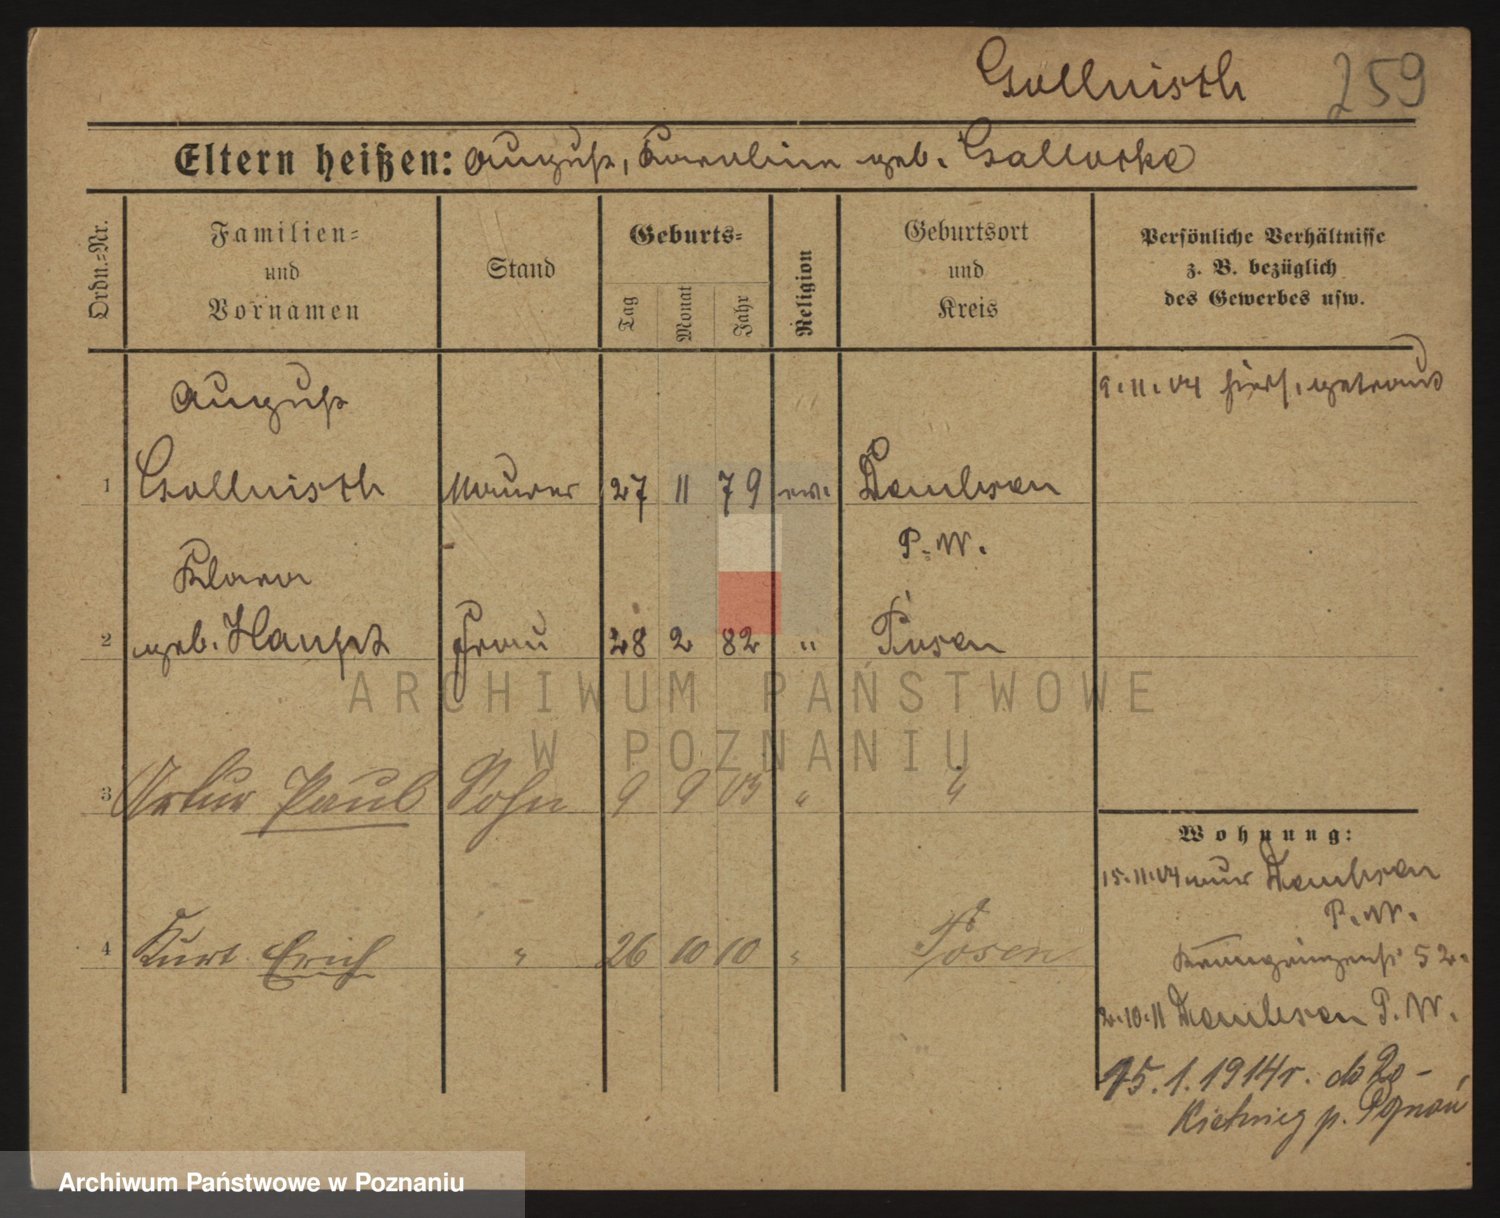 Gollnisch 259
Eltern heißen: August, Karoline geb.
Ordn.=Nr.
Familien=
und
Vornamen
Stand
Geburts=
Tag
Monat
Jahr
Religion
Geburtsort
und
Kreis
Persönliche Verhältnisse
z. B. bezüglich
des Gewerbes usw.
August
9.11.04 getraut
1 Gollnisch Maurer 27 11 79 ev. Dembsen
P.W.
Klara
2 geb. Haupt Frau 28 2 82 " Posen
ARCHIWUM PAŃSTWOWE
W POZNANIU
3 Artur Paul Sohn 9 9 05 " "
Wohnung:
15.11.04 Dembsen
P.W.
4 Kurt Erich " 26 10 10 " Posen
Kronprinzenst 52.
2.10.11 Dembsen P.W.
15.1.1914r. do
p. Poznań
Archiwum Państwowe w Poznaniu